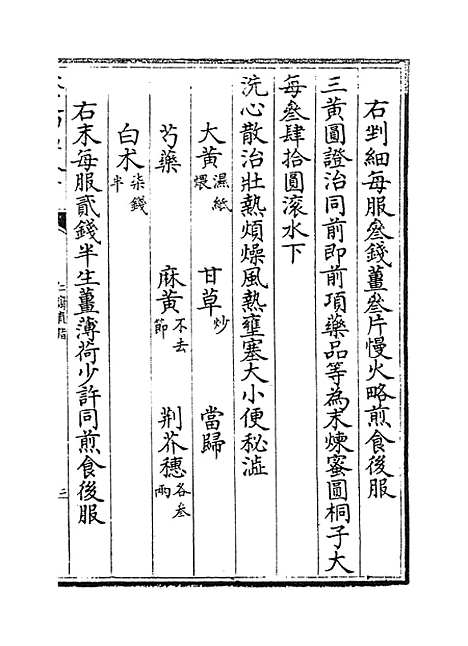 右剉細每服叄錢薑叄片慢火略煎食後服
三黃圓證治同前即前項藥品等為末煉蜜圓桐子大
每叄肆拾圓滚水下
洗心散治壯熱煩燥風熱壅塞大小便秘澁
大黃濕紙煨 甘草炒 當歸
芍藥 麻黃不去節 荆芥穗各叄兩
白术柒錢半
右末每服貳錢半生薑薄荷少許同煎食後服
三